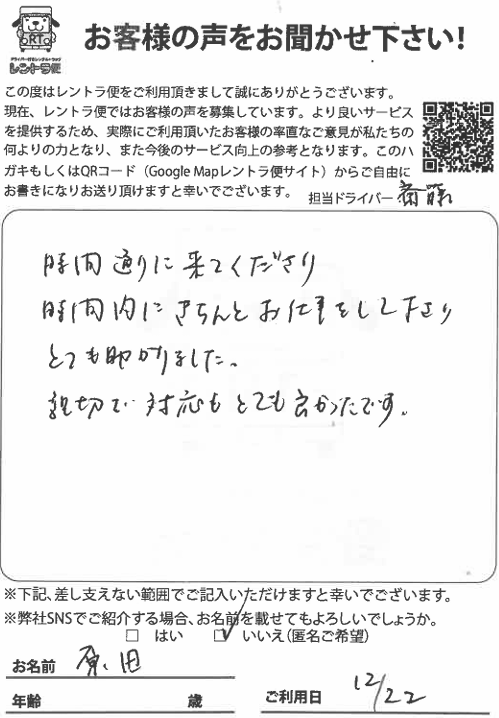 お客様の声をお聞かせ下さい!
RTC
ドライバー付きレンタルトラック
レントラ便
この度はレントラ便をご利用頂きまして誠にありがとうございます。
現在、レントラ便ではお客様の声を募集しています。より良いサービス
を提供するため、実際にご利用頂いたお客様の率直なご意見が私たちの
何よりの力となり、また今後のサービス向上の参考となります。このハ
ガキもしくはQRコード（Google Mapレントラ便サイト）からご自由に
お書きになりお送り頂けますと幸いでございます。
担当ドライバー 斎藤
時間通りに来てくださり
時間内にきちんとお仕事をして下さり
とても助かりました。
親切で対応もとても良かったです。
※下記、差し支えない範囲でご記入いただけますと幸いでございます。
※弊社SNSでご紹介する場合、お名前を載せてもよろしいでしょうか。
□ はい ☑ いいえ(匿名ご希望)
お名前 原田
年齢 歳
ご利用日 12/22